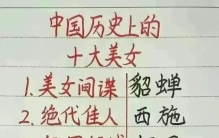 中国历史上的
十大美女
1.美女间谍 貂蝉
2.绝代佳人 西施